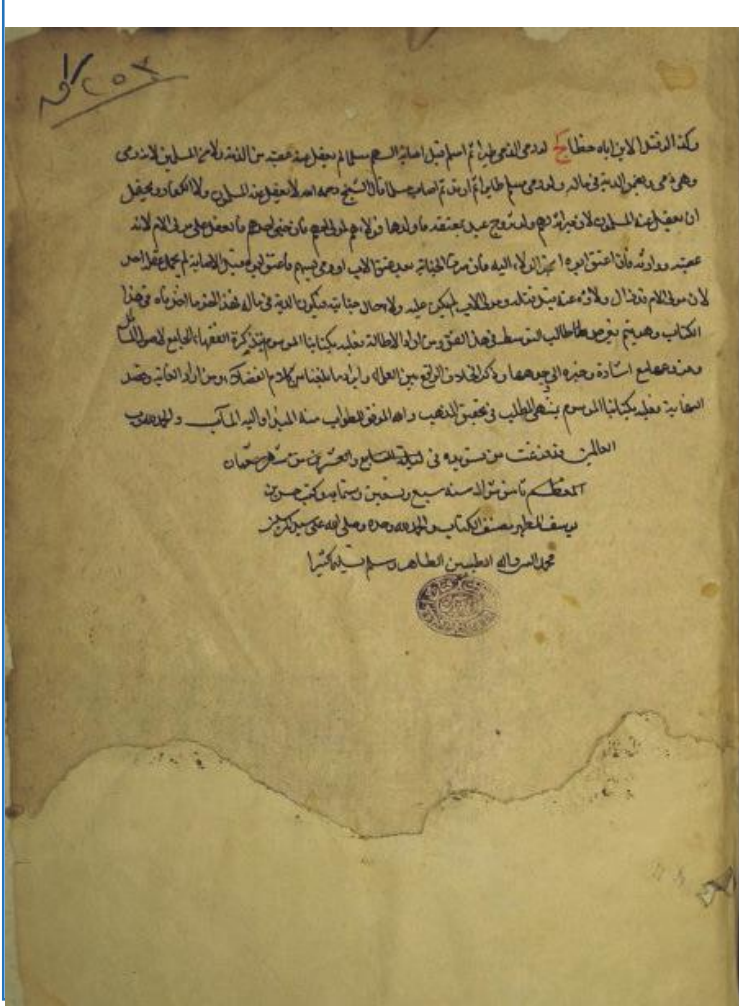 ٢٥٣
وكذا لو قتل الابن اباه خطأ كج لو رمى الذمي طيرا ثم اسلم قبل اصابة السهم مسلما لم يعقل عنه عصبته من الذمة ولا من المسلمين لانه رمى
وهو ذمي ويضمن الدية في ماله ولو رمى مسلم طايرا ثم ارتد ثم اصاب مسلما قال الشيخ رحمه الله لا يعقل عنه المسلمون ولا الكفار ويحتمل
ان يعقل عنه المسلمون لان ميراثه لهم ولو تزوج عبد بمعتقة فاولدها فولاؤهم لمولى الام فان جنى احدهم فالعقل على مولى الام لانه
عصبته ووارثه فان اعتق ابوه انجر الولاء اليه فان سرت الجناية بعد عتق الاب او رمى بسهم فاعتق ابوه قبل الاصابة لم يحمل عقله احد
لان مولى الام قد زال ولاؤه عنه قبل قتله ومولى الاب لم يكن عليه ولاء حال جنايته فتكون الدية في ماله فهذا اخر ما اخترناه في هذا
الكتاب وهو قيم بغرض طالب التوسط في هذا الفن ومن اراد الاطالة فعليه بكتابنا الموسوم بتذكرة الفقهاء الجامع لاصول المسائل
وفروعها مع اشارة وجيزة الى وجوهها وذكر الخلاف الواقع بين العلماء وايراد ما بلغنا من كلام الفضلاء ومن اراد الغاية وقصد
النهاية فعليه بكتابنا الموسوم بمنتهى المطلب في تحقيق المذهب والله الموفق للصواب منه المبدأ واليه المآب والحمد لله رب
العالمين فرغت من تسويده في ليلة السابع والعشرين من شهر رمضان
المعظم سنة سبع وتسعين وستمايه وكتب حسن بن
يوسف المطهر مصنف الكتاب والحمد لله وحده وصلى الله على سيد المرسلين
محمد النبي واله الطيبين الطاهرين وسلم تسليما كثيرا